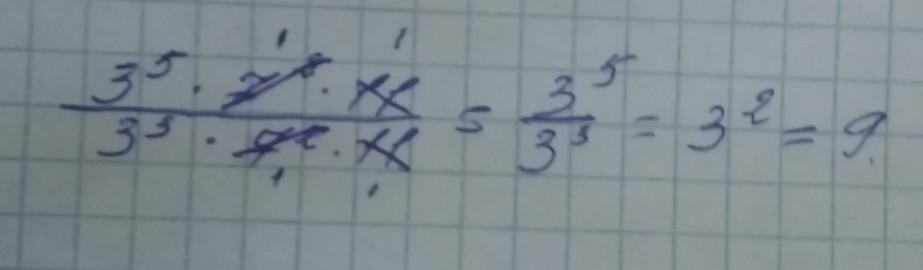 1 1
3⁵ · 7² · 11
3³ · 7² · 11
1 1
= 3⁵ / 3³ = 3² = 9.